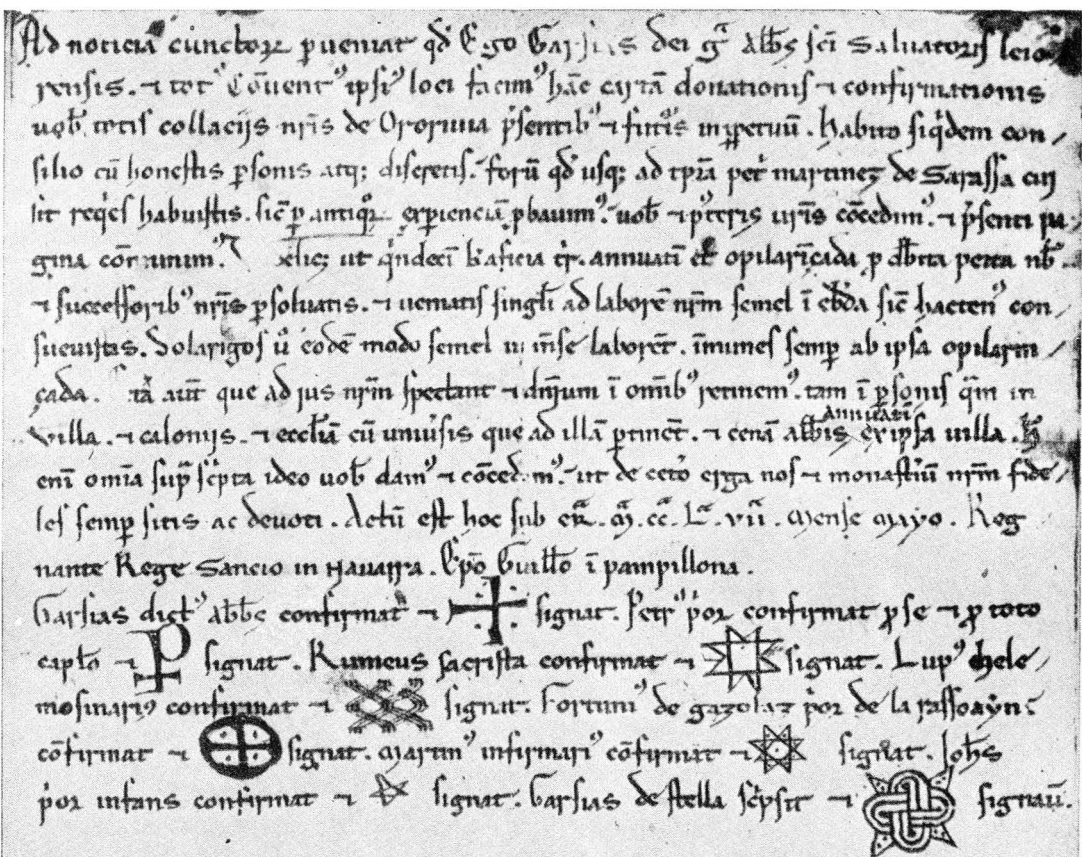 Ad noticiā cunctoꝝ ꝑueniat qđ Ego Garsias dei gr̄a Abb̄s sc̄i Saluatoris leio
rensis. ⁊ totꝰ Cōuentꝰ ipsiꝰ loci facimꝰ hāc cartā donationis ⁊ confirmationis
uob̄ totis collacijs nr̄is de Ororiuia p̄sentibꝰ ⁊ futr̄is inꝑpetuū. Habito siq̄dem con
silio cū honestis ꝑsonis atq; discretis. forū qđ usq; ad tp̄ra pet̄ martinez de Sarassa cui
sit req̄es habuistis. sic̄ ꝑ antiq̄oꝝ exꝑienciā ꝓbauimꝰ. uob̄ ⁊ p̄teris ur̄is cōcedimꝰ. ⁊ p̄senti pa
gina ut q̄ndeci tr̄. annuati opilarīçada ꝓ deb̄ita pecta nob̄.
⁊ successoribꝰ nr̄is ꝑsoluatis. ⁊ ueniatis singl̄i ad laborē nr̄m semel ī eb̄da sic̄ hactenꝰ con
sueuistis. Solarigos ū eodē modo semel in m̄se laborēt. īmunes semꝑ ab ipsa opilarin
çada. aūt que ad jus nr̄m spectant ⁊ dn̄ium ī omībꝰ retinemꝰ. tam ī ꝑsonis q̄m in
uilla. ⁊ calonijs. ⁊ eccl̄iā cū uniu̓sis que ad illā ꝑtinēt. ⁊ cenā abb̄is annuati ex ipsa uilla. H̄
eni omīa sup̄ sc̄pta ideo uob̄ damꝰ ⁊ cōcedimꝰ. ut de cet̓o erga nos ⁊ monast̓iū nr̄m fide
les semꝑ sitis ac deuoti. Actū est hoc sub er̄a. m̄. cc̄. L̄. vii. Mense Mayo. Reg
nante Rege Sancio in Nauarra. Ep̄o Guill̄o ī pampillona.
Garsias dictꝰ abb̄s confirmat ⁊ signat. Petrꝰ p̓or confirmat ꝓ se ⁊ ꝓ toto
capl̄o ⁊ signat. Rumeus sacrista confirmat ⁊ signat. Lupꝰ hele
mosinariꝰ confirmat ⁊ signat. Fortuniꝰ de gazolaz p̓or de la rassoayn
cōfirmat ⁊ signat. Martinꝰ infirmariꝰ cōfirmat ⁊ signat. Joh̄s
p̓or infans confirmat ⁊ signat. Garsias de stella sc̓psit ⁊ signau̅.